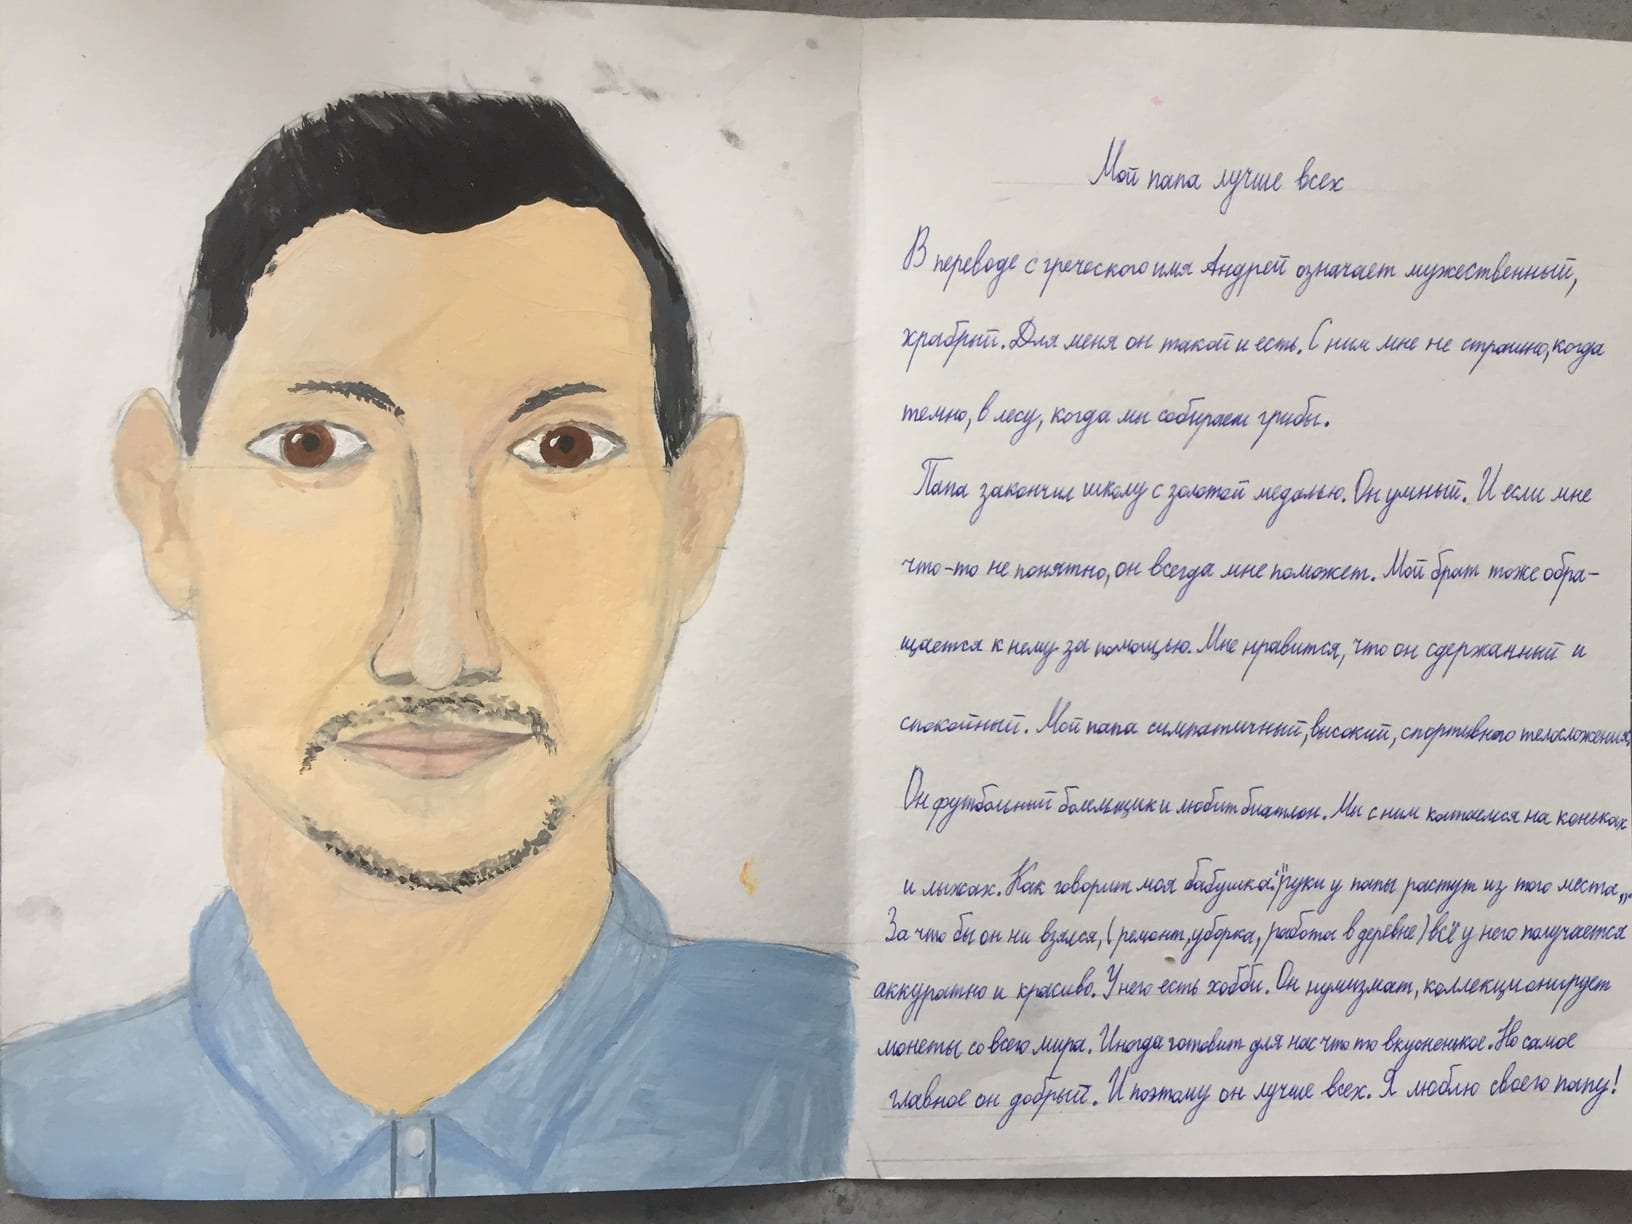 Мой папа лучше всех
В переводе с греческого имя Андрей означает мужественный,
храбрый. Для меня он такой и есть. С ним мне не страшно, когда
темно, в лесу, когда мы собираем грибы.
Папа закончил школу с золотой медалью. Он умный. И если мне
что-то не понятно, он всегда мне поможет. Мой брат тоже обра-
щается к нему за помощью. Мне нравится, что он сдержанный и
спокойный. Мой папа симпатичный, высокий, спортивного телосложения.
Он футбольный болельщик и любит биатлон. Мы с ним катаемся на коньках
и лыжах. Как говорит моя бабушка: "руки у папы растут из того места„.
За что бы он ни взялся, (ремонт, уборка, работа в деревне) всё у него получается
аккуратно и красиво. У него есть хобби. Он нумизмат, коллекционирует
монеты со всего мира. Иногда готовит для нас что то вкусненькое. Но самое
главное он добрый. И поэтому он лучше всех. Я люблю своего папу!